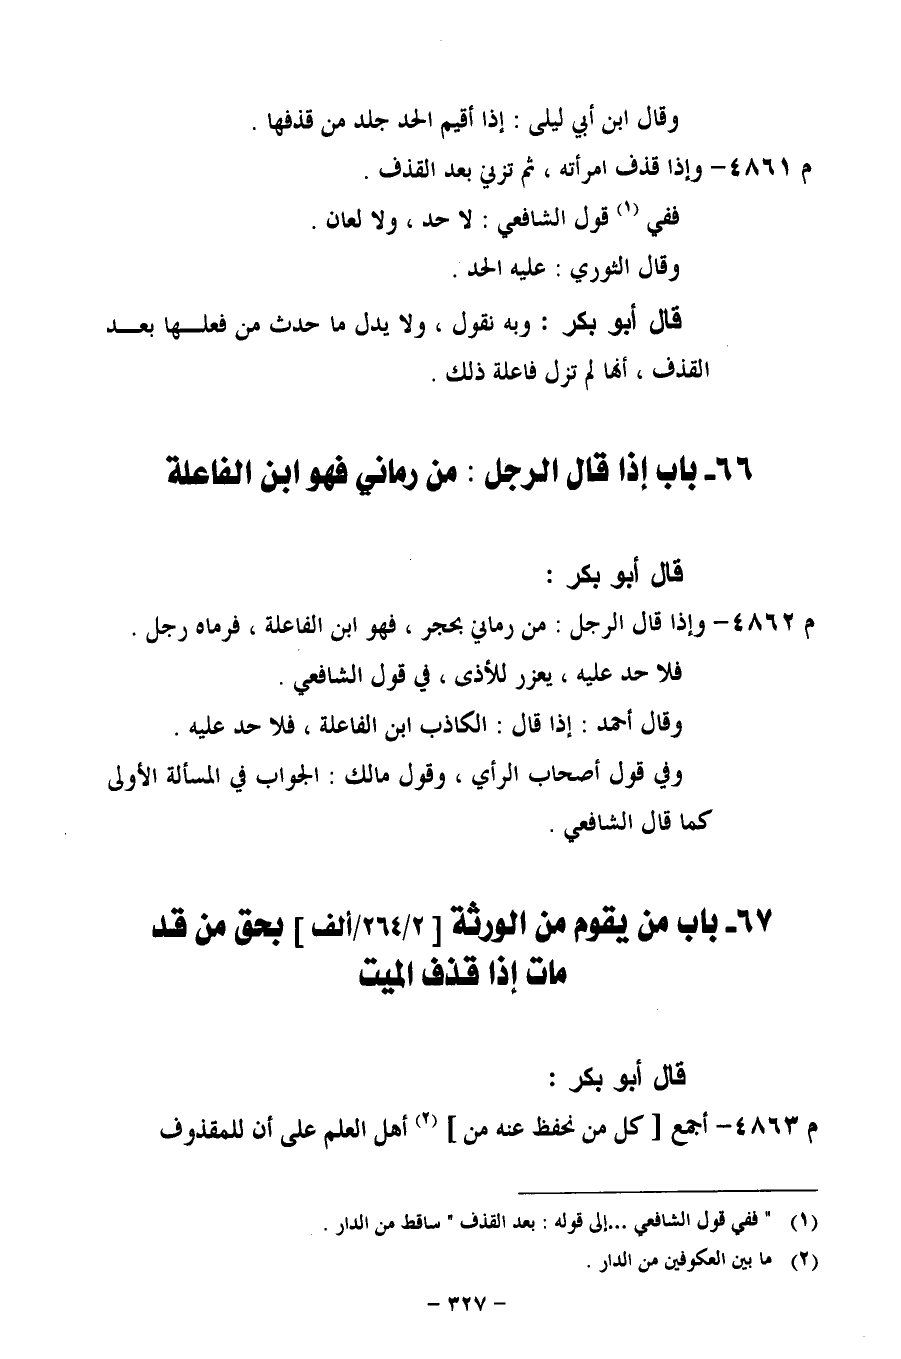 وقال ابن أبي ليلى : إذا أقيم الحد جلد من قذفها .
م ٤٨٦١– وإذا قذف امرأته ، ثم تزني بعد القذف .
ففي (١) قول الشافعي : لا حد ، ولا لعان .
وقال الثوري : عليه الحد .
قال أبو بكر : وبه نقول ، ولا يدل ما حدث من فعلـــها بعـــد
القذف ، أنها لم تزل فاعلة ذلك .
٦٦ـ باب إذا قال الرجل : من رماني فهو ابن الفاعلة
قال أبو بكر :
م ٤٨٦٢– وإذا قال الرجل : من رماني بحجر ، فهو ابن الفاعلة ، فرماه رجل .
فلا حد عليه ، يعزر للأذى ، في قول الشافعي .
وقال أحمد : إذا قال : الكاذب ابن الفاعلة ، فلا حد عليه .
وفي قول أصحاب الرأي ، وقول مالك : الجواب في المسألة الأولى
كما قال الشافعي .
٦٧ـ باب من يقوم من الورثة [ ٢/٢٦٤/ألف ] بحق من قد
مات إذا قذف الميت
قال أبو بكر :
م ٤٨٦٣– أجمع [ كل من نحفظ عنه من ] (٢) أهل العلم على أن للمقذوف
(١) " ففي قول الشافعي ...إلى قوله : بعد القذف " ساقط من الدار .
(٢) ما بين العكوفين من الدار .
– ٣٢٧ –